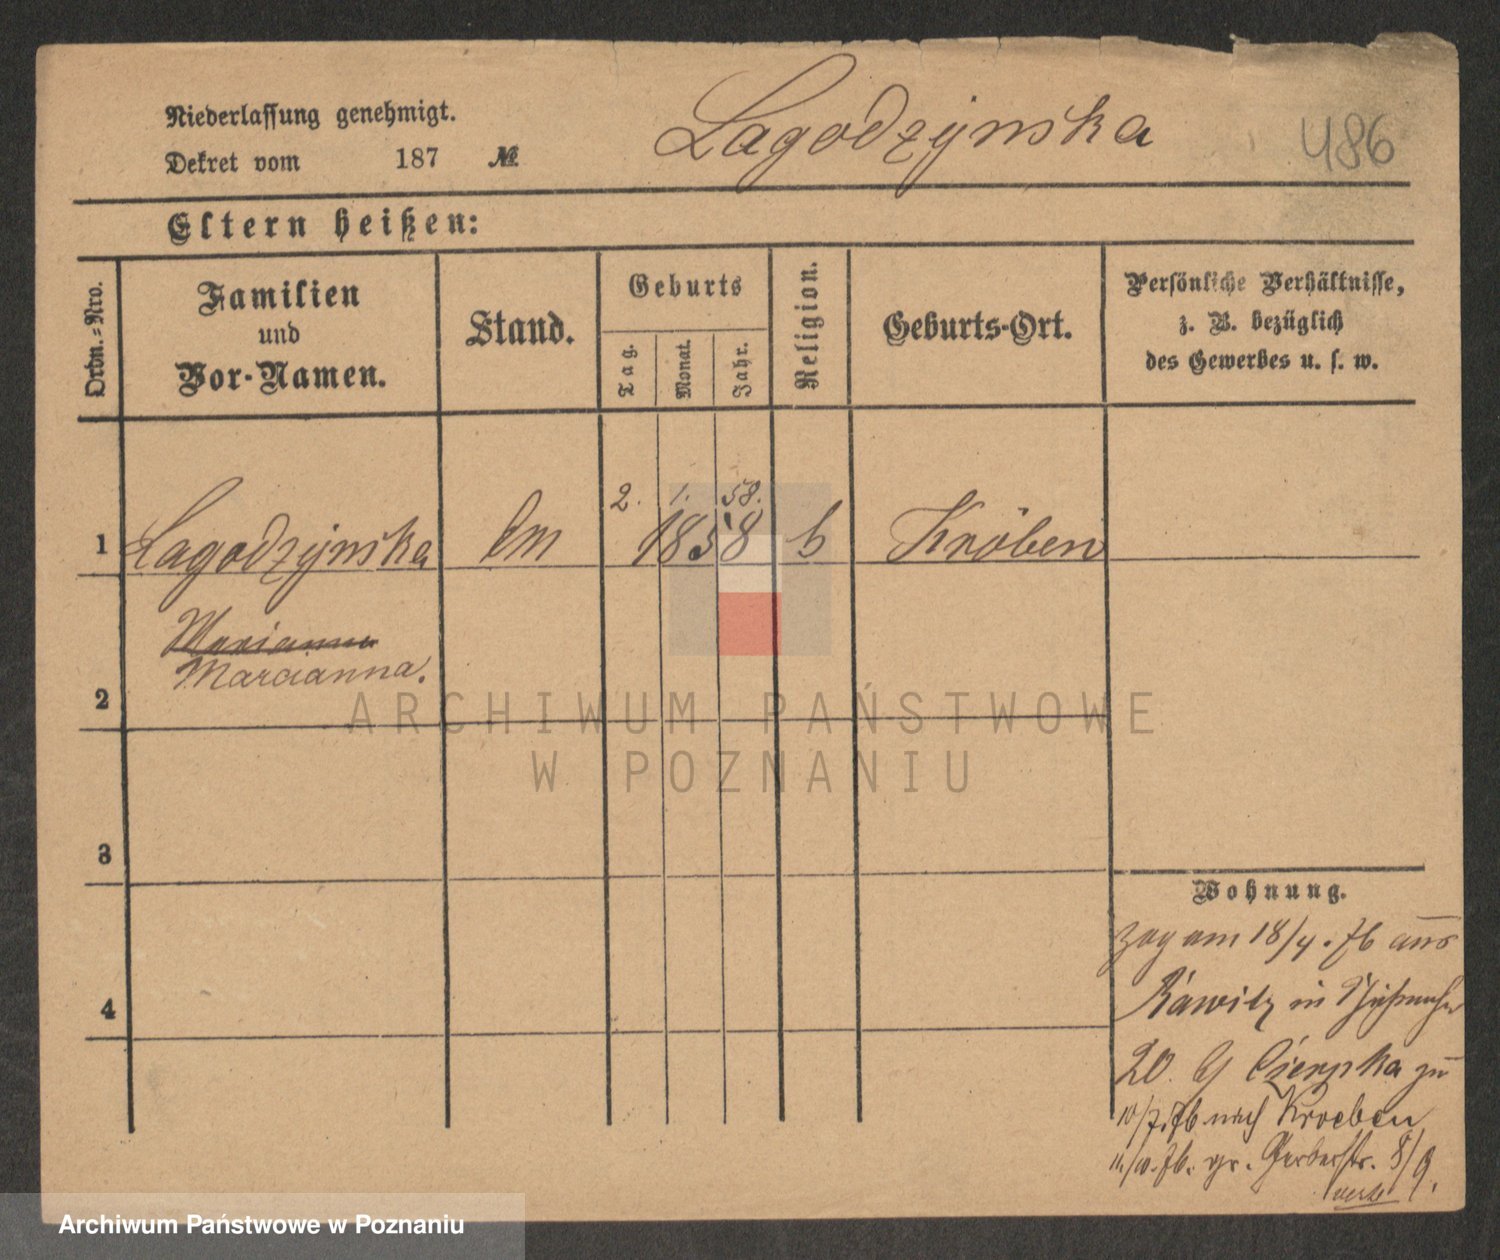 Lagodzynska
486
Niederlassung genehmigt.
Dekret vom 187 №
Eltern heißen:
Ordn.-Nro.
Familien
und
Vor-Namen.
Stand.
Geburts
Tag.
Monat.
Jahr.
Religion.
Geburts-Ort.
Persönliche Verhältnisse,
z. B. bezüglich
des Gewerbes u. s. w.
2. 1. 58.
1 Lagodzynska 1858 Kröben
Marianna
Marcianna.
2
3
4
Wohnung.
zog am 18/4. 76 aus
Rawitz in
20. Czienpka zu
10/7. 76 nach Kroeben
11/10. 76. gr. Gerberstr. 8/9.
ARCHIWUM PAŃSTWOWE
W POZNANIU
Archiwum Państwowe w Poznaniu